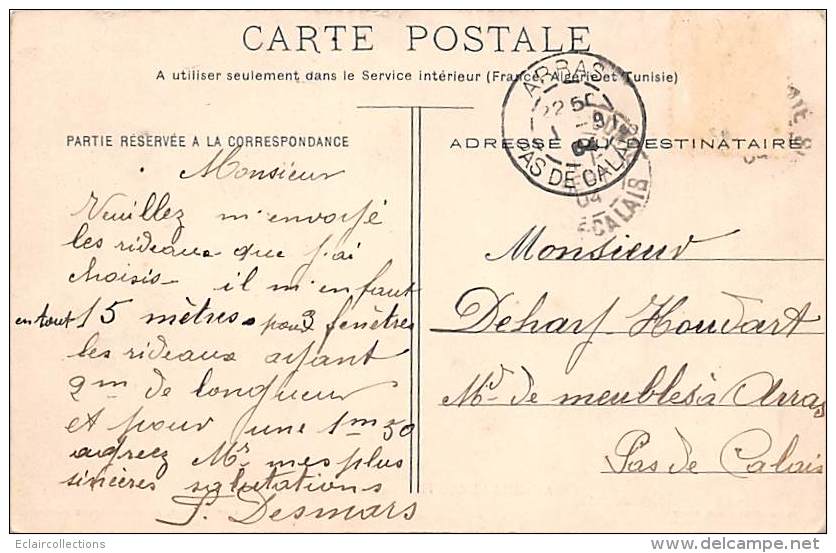 CARTE POSTALE
A utiliser seulement dans le Service intérieur (France, Algérie et Tunisie)
PARTIE RÉSERVÉE A LA CORRESPONDANCE
Monsieur
Veuillez m'envoyé
les rideaux que j'ai
choisis - il m'en faut
en tout 15 mètres. pour 3 fenêtres
les rideaux ayant
2m de longueur
et pour une 1m50
agreez Mr mes plus
sincères salutations
Desmars
ARRAS
PAS DE CALAIS
04
CALAIS
ADRESSE DU DESTINATAIRE
Monsieur
Houdart
Md de meubles à Arras
Pas de Calais
Eclaircollections
www.delcampe.net